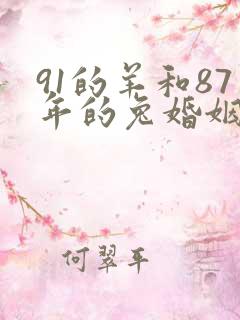 91的羊和87
年的兔婚姻
何翠平